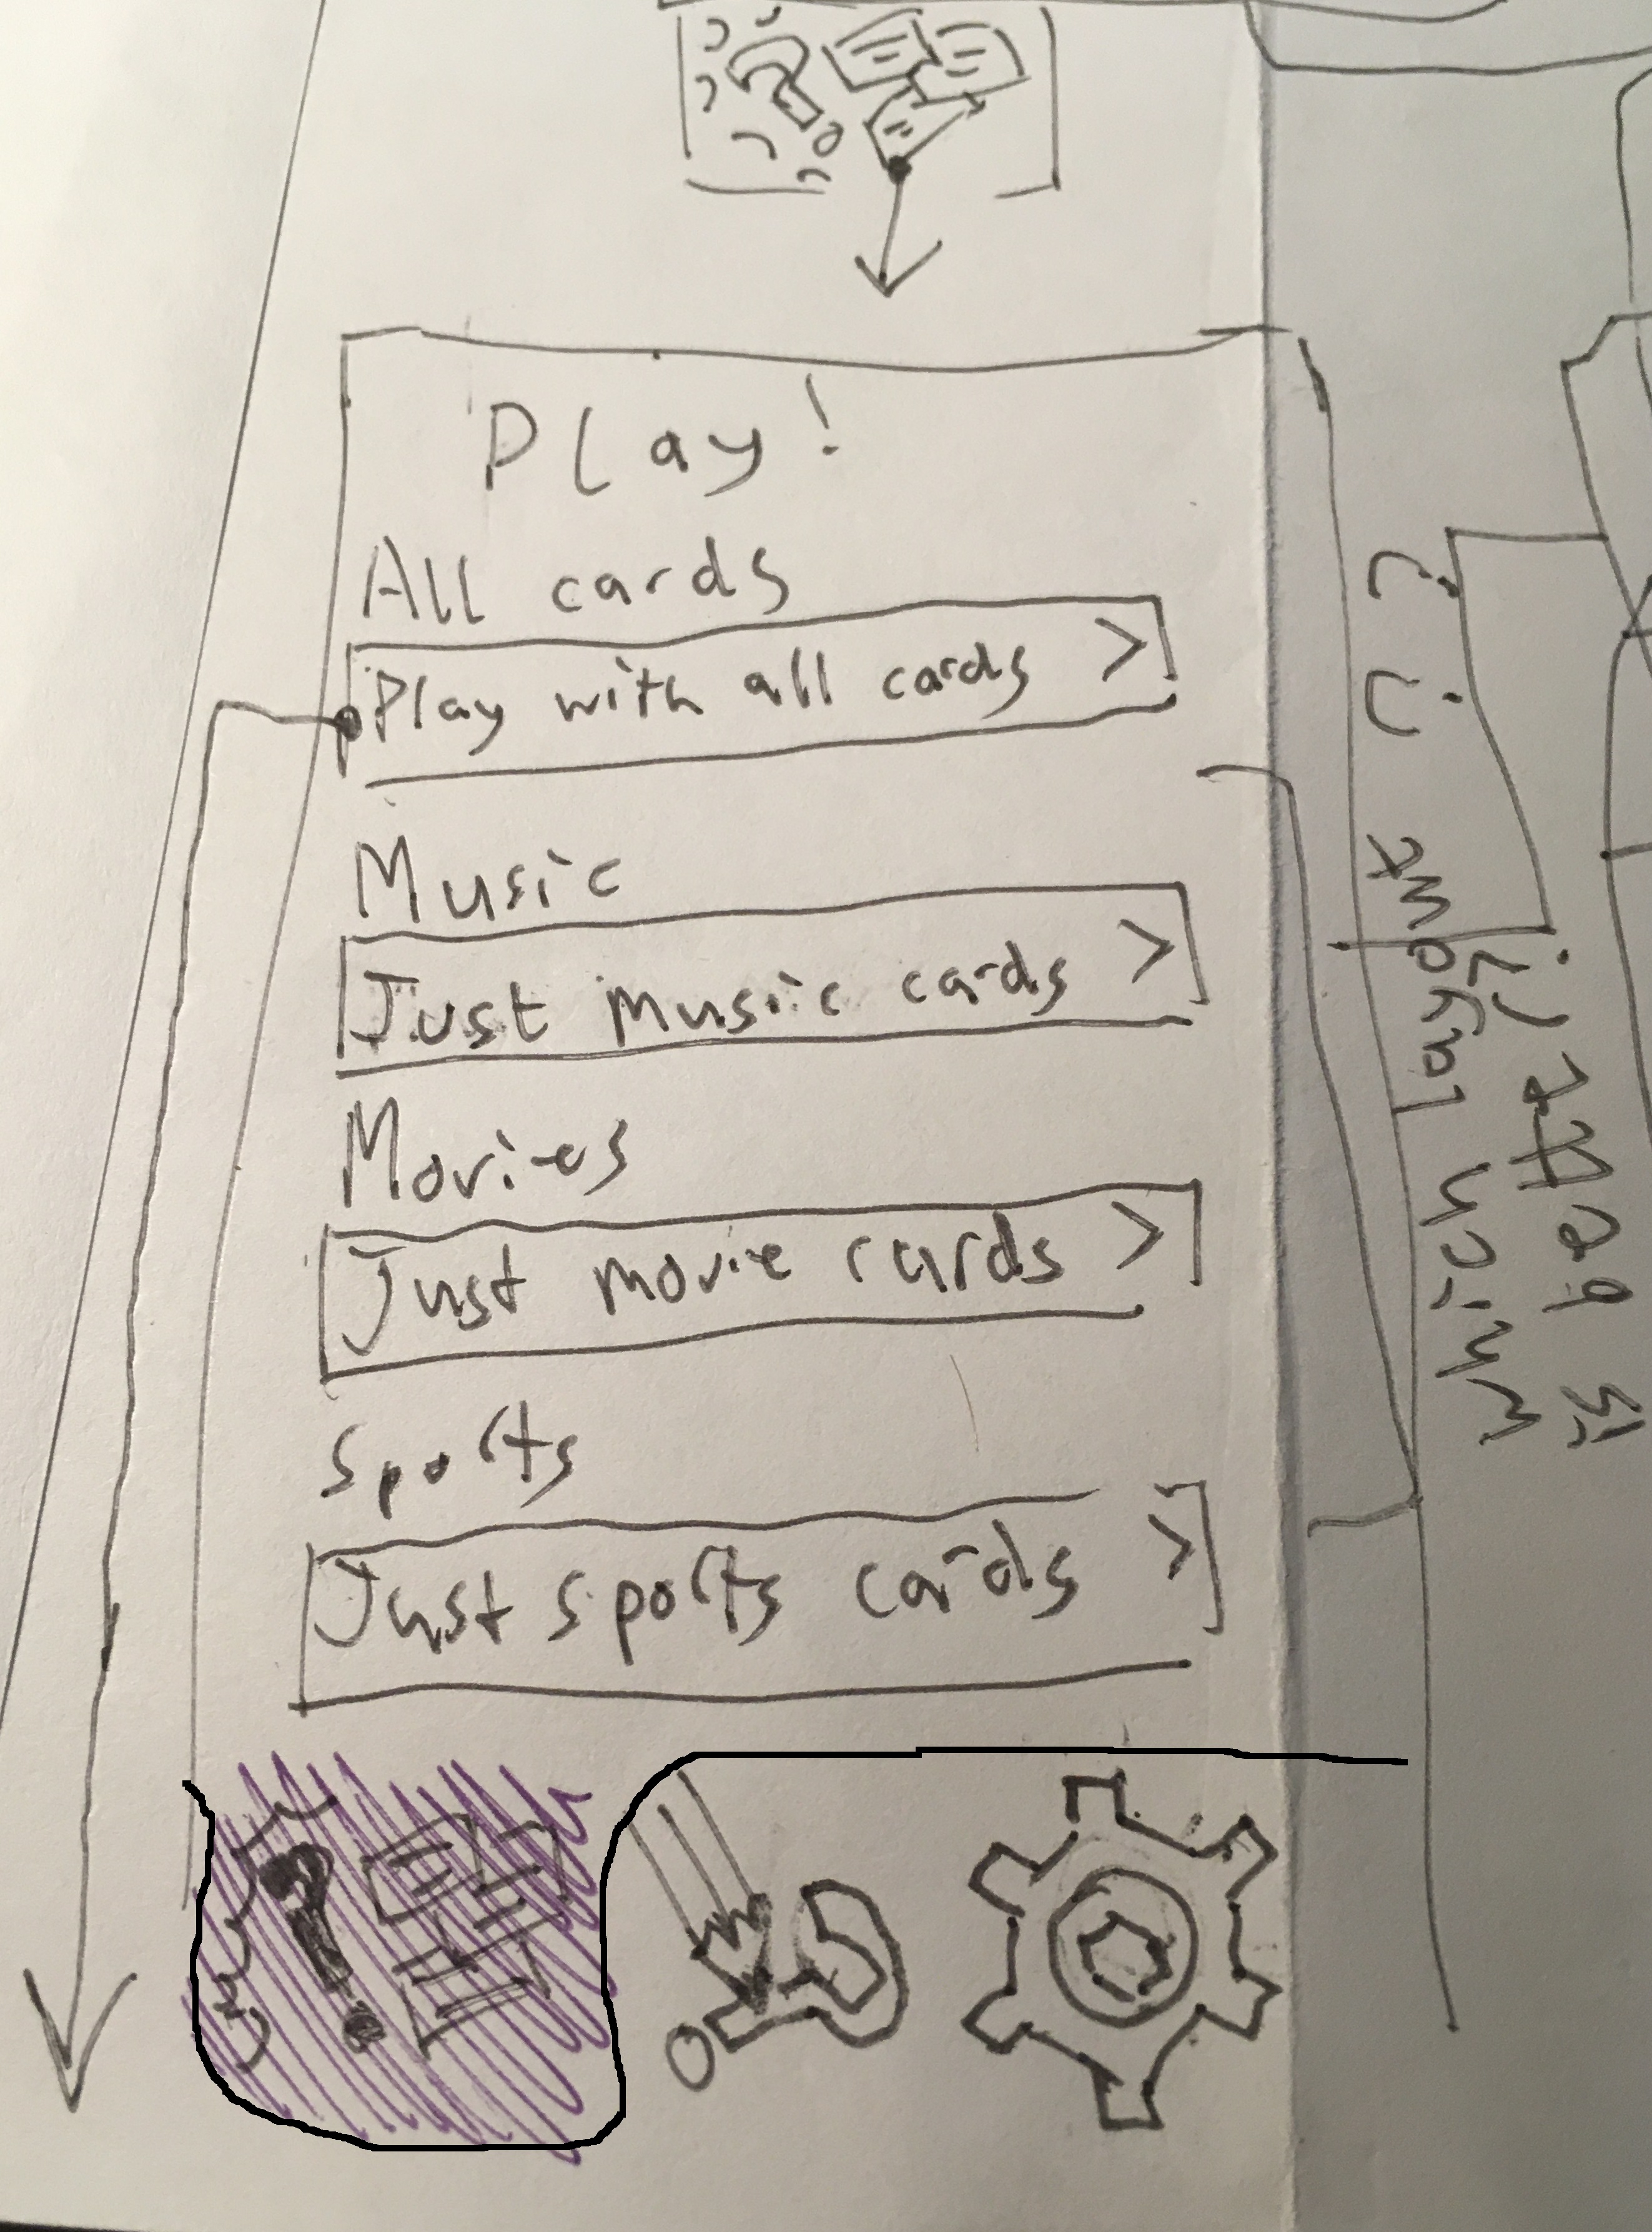 Play!
All cards
Play with all cards >
Music
Just music cards >
Movies
Just movie cards >
Sports
Just sports cards >
Which layout
is better?